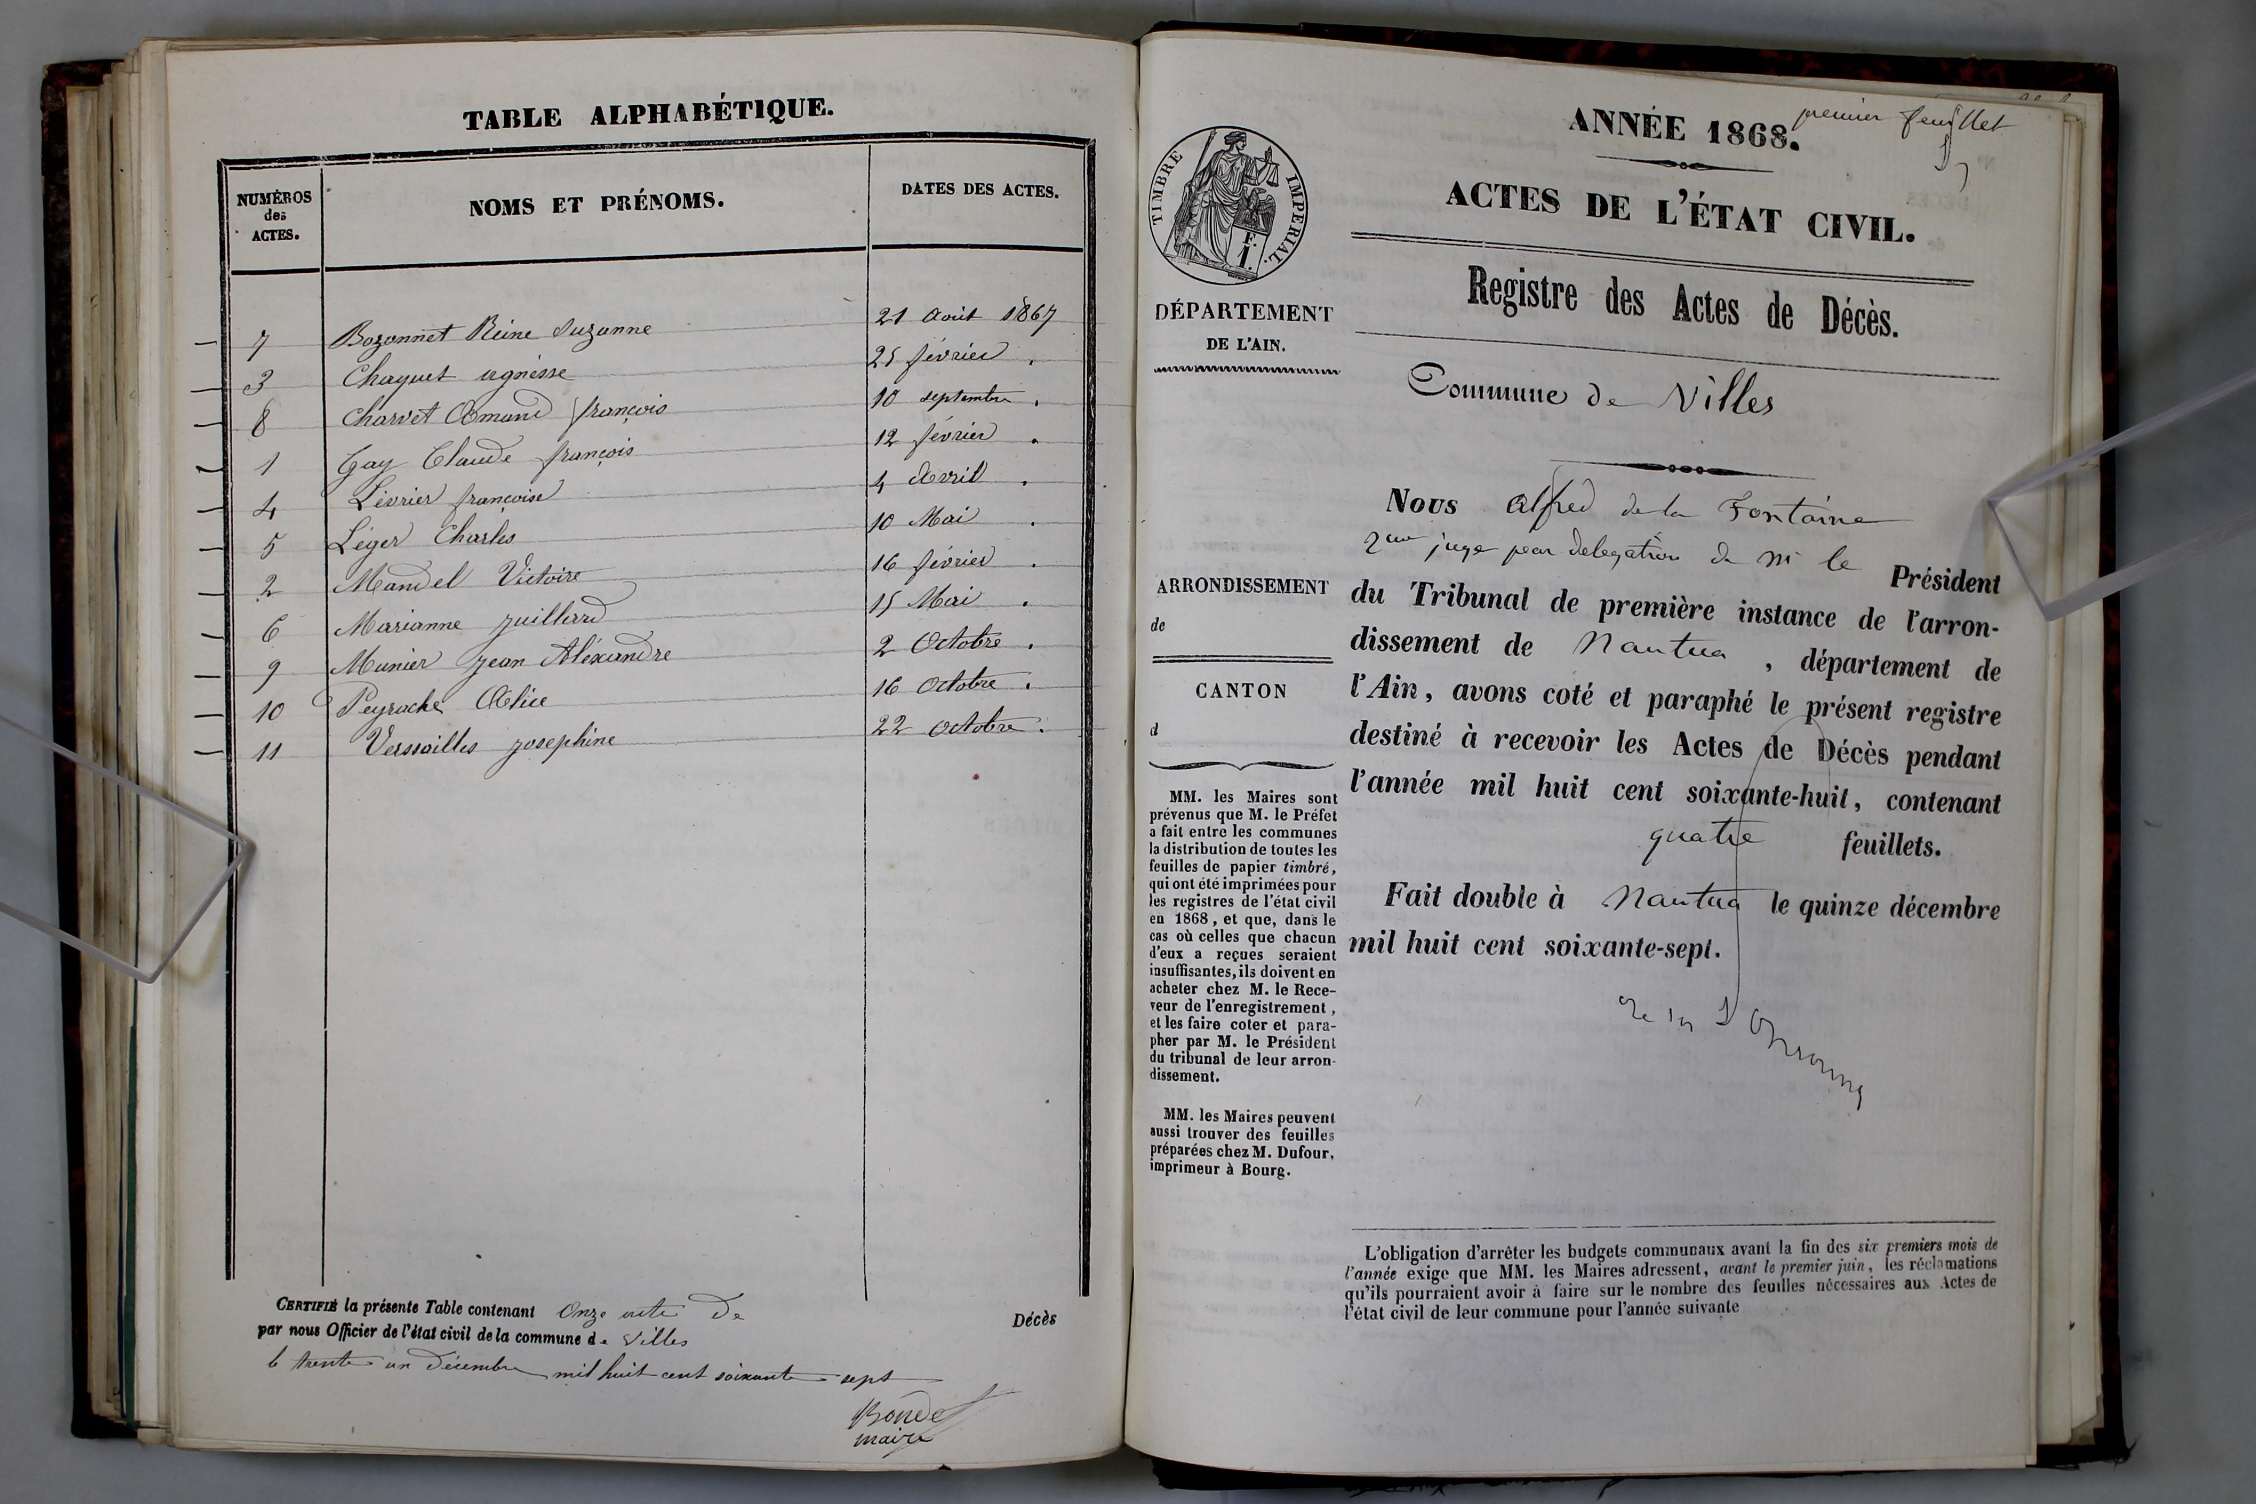 TABLE ALPHABÉTIQUE.
NUMÉROS des ACTES.
NOMS ET PRÉNOMS.
DATES DES ACTES.
7 Bozonnet Reine Suzanne 21 Août 1867
3 Chaquet agnèsse 25 février .
8 Charvet Armand françois 10 septembre .
1 Gay Claude françois 12 février .
4 Lévrier françoise 4 Avril .
5 Léger Charles 10 Mai .
2 Mandel Victoire 16 février .
6 Marianne juillard 15 Mai .
9 Munier jean Aléxandre 2 Octobre .
10 Peyrache Alice 16 Octobre .
11 Versailles josephine 22 octobre .
CERTIFIÉ la présente Table contenant Onze acte De Décès
par nous Officier de l'état civil de la commune de Villes
le trente un Décembre mil huit cent soixante sept
Bondet
maire
premier feuillet
ANNÉE 1868.
ACTES DE L'ÉTAT CIVIL.
Registre des Actes de Décès.
Commune de Villes
TIMBRE IMPÉRIAL.
F.
1.
DÉPARTEMENT
DE L'AIN.
ARRONDISSEMENT
de
CANTON
d
MM. les Maires sont
prévenus que M. le Préfet
a fait entre les communes
la distribution de toutes les
feuilles de papier timbré,
qui ont été imprimées pour
les registres de l'état civil
en 1868, et que, dans le
cas où celles que chacun
d'eux a reçues seraient
insuffisantes, ils doivent en
acheter chez M. le Rece-
veur de l'enregistrement,
et les faire coter et para-
pher par M. le Président
du tribunal de leur arron-
dissement.
MM. les Maires peuvent
aussi trouver des feuilles
préparées chez M. Dufour,
imprimeur à Bourg.
Nous Alfred de la Fontaine
juge par delegation de Mr le Président
du Tribunal de première instance de l'arron-
dissement de Nantua , département de
l'Ain, avons coté et paraphé le présent registre
destiné à recevoir les Actes de Décès pendant
l'année mil huit cent soixante-huit, contenant
quatre feuillets.
Fait double à Nantua le quinze décembre
mil huit cent soixante-sept.
L'obligation d'arrêter les budgets communaux avant la fin des six premiers mois de
l'année exige que MM. les Maires adressent, avant le premier juin, les réclamations
qu'ils pourraient avoir à faire sur le nombre des feuilles nécessaires aux Actes de
l'état civil de leur commune pour l'année suivante